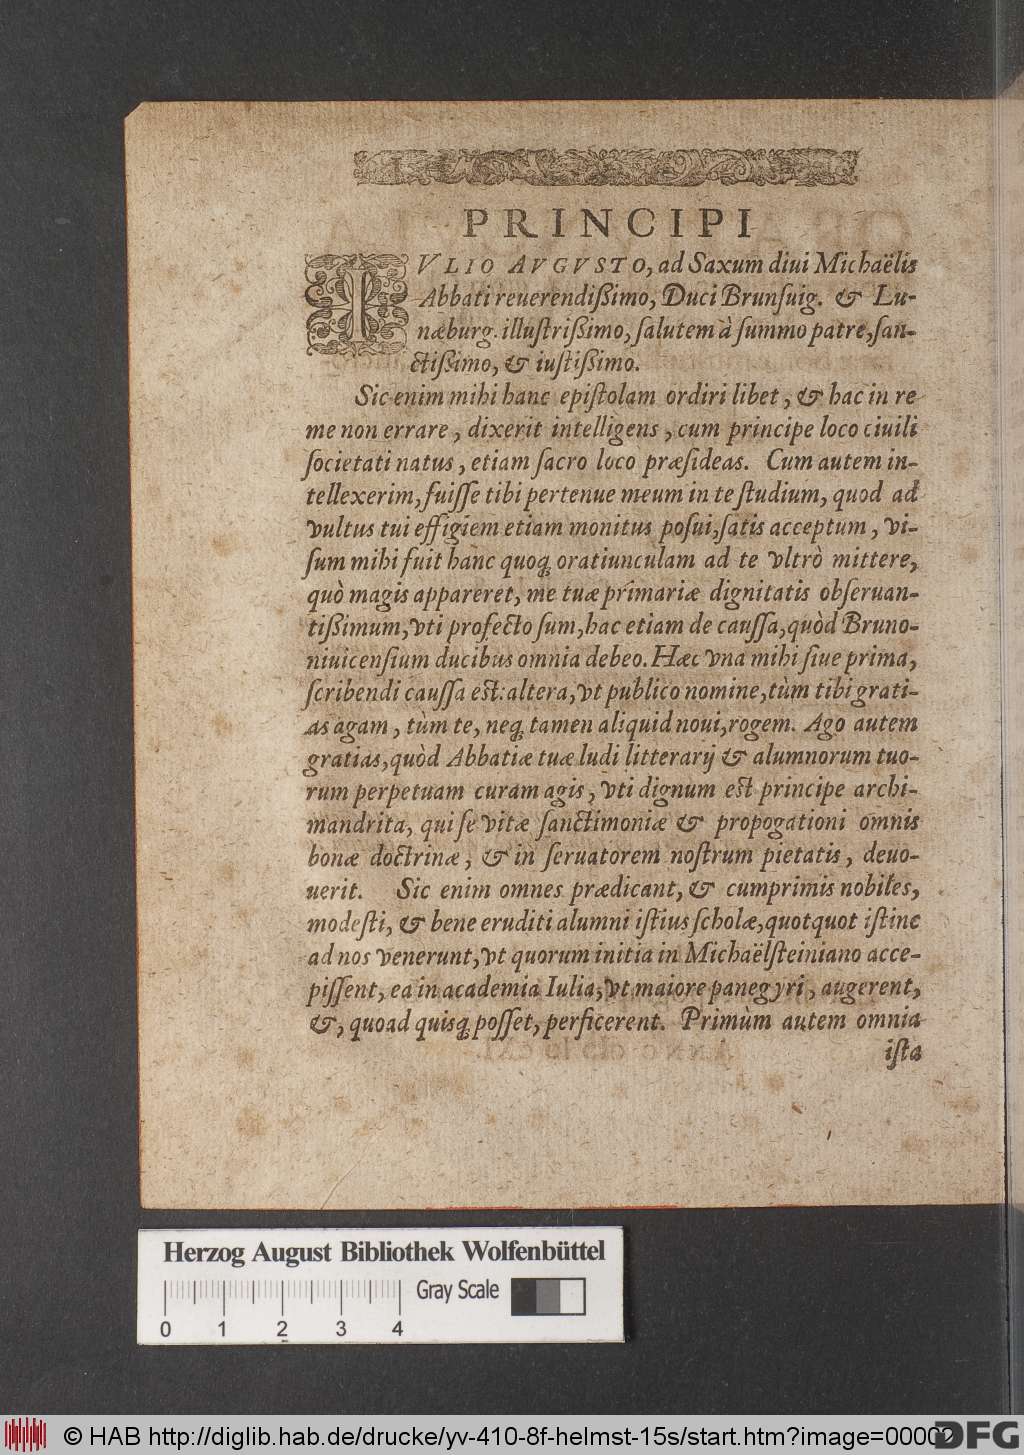 PRINCIPI
IVLIO AVGVSTO, ad Saxum diui Michaëlis
Abbati reuerendißimo, Duci Brunſuig. & Lu-
næburg. illuſtrißimo, ſalutem à ſummo patre, ſan-
ctißimo, & iuſtißimo.
Sic enim mihi hanc epiſtolam ordiri libet, & hac in re
me non errare, dixerit intelligens, cum principe loco ciuili
ſocietati natus, etiam ſacro loco præſideas. Cum autem in-
tellexerim, fuiſſe tibi pertenue meum in te ſtudium, quod ad
vultus tui effigiem etiam monitus poſui, ſatis acceptum, vi-
ſum mihi fuit hanc quoq; oratiunculam ad te vltrò mittere,
quò magis appareret, me tuæ primariæ dignitatis obſeruan-
tißimum, vti profecto ſum, hac etiam de cauſſa, quòd Bruno-
niuicenſium ducibus omnia debeo. Hæc vna mihi ſiue prima,
ſcribendi cauſſa est: altera, vt publico nomine, tùm tibi grati-
as agam, tùm te, neq; tamen aliquid noui, rogem. Ago autem
gratias, quòd Abbatiæ tuæ ludi litterarij & alumnorum tuo-
rum perpetuam curam agis, vti dignum est principe archi-
mandrita, qui ſe vitæ ſanctimoniæ & propogationi omnis
bonæ doctrinæ, & in ſeruatorem noſtrum pietatis, deuo-
uerit. Sic enim omnes prædicant, & cumprimis nobiles,
modeſti, & bene eruditi alumni iſtius ſcholæ, quotquot iſtinc
ad nos venerunt, vt quorum initia in Michaëlſteiniano acce-
piſſent, ea in academia Iulia, vt maiore panegyri, augerent,
&, quoad quisq; poſſet, perficerent. Primùm autem omnia
iſta
Herzog August Bibliothek Wolfenbüttel
Gray Scale
0 1 2 3 4
© HAB http://diglib.hab.de/drucke/yv-410-8f-helmst-15s/start.htm?image=00002
DFG